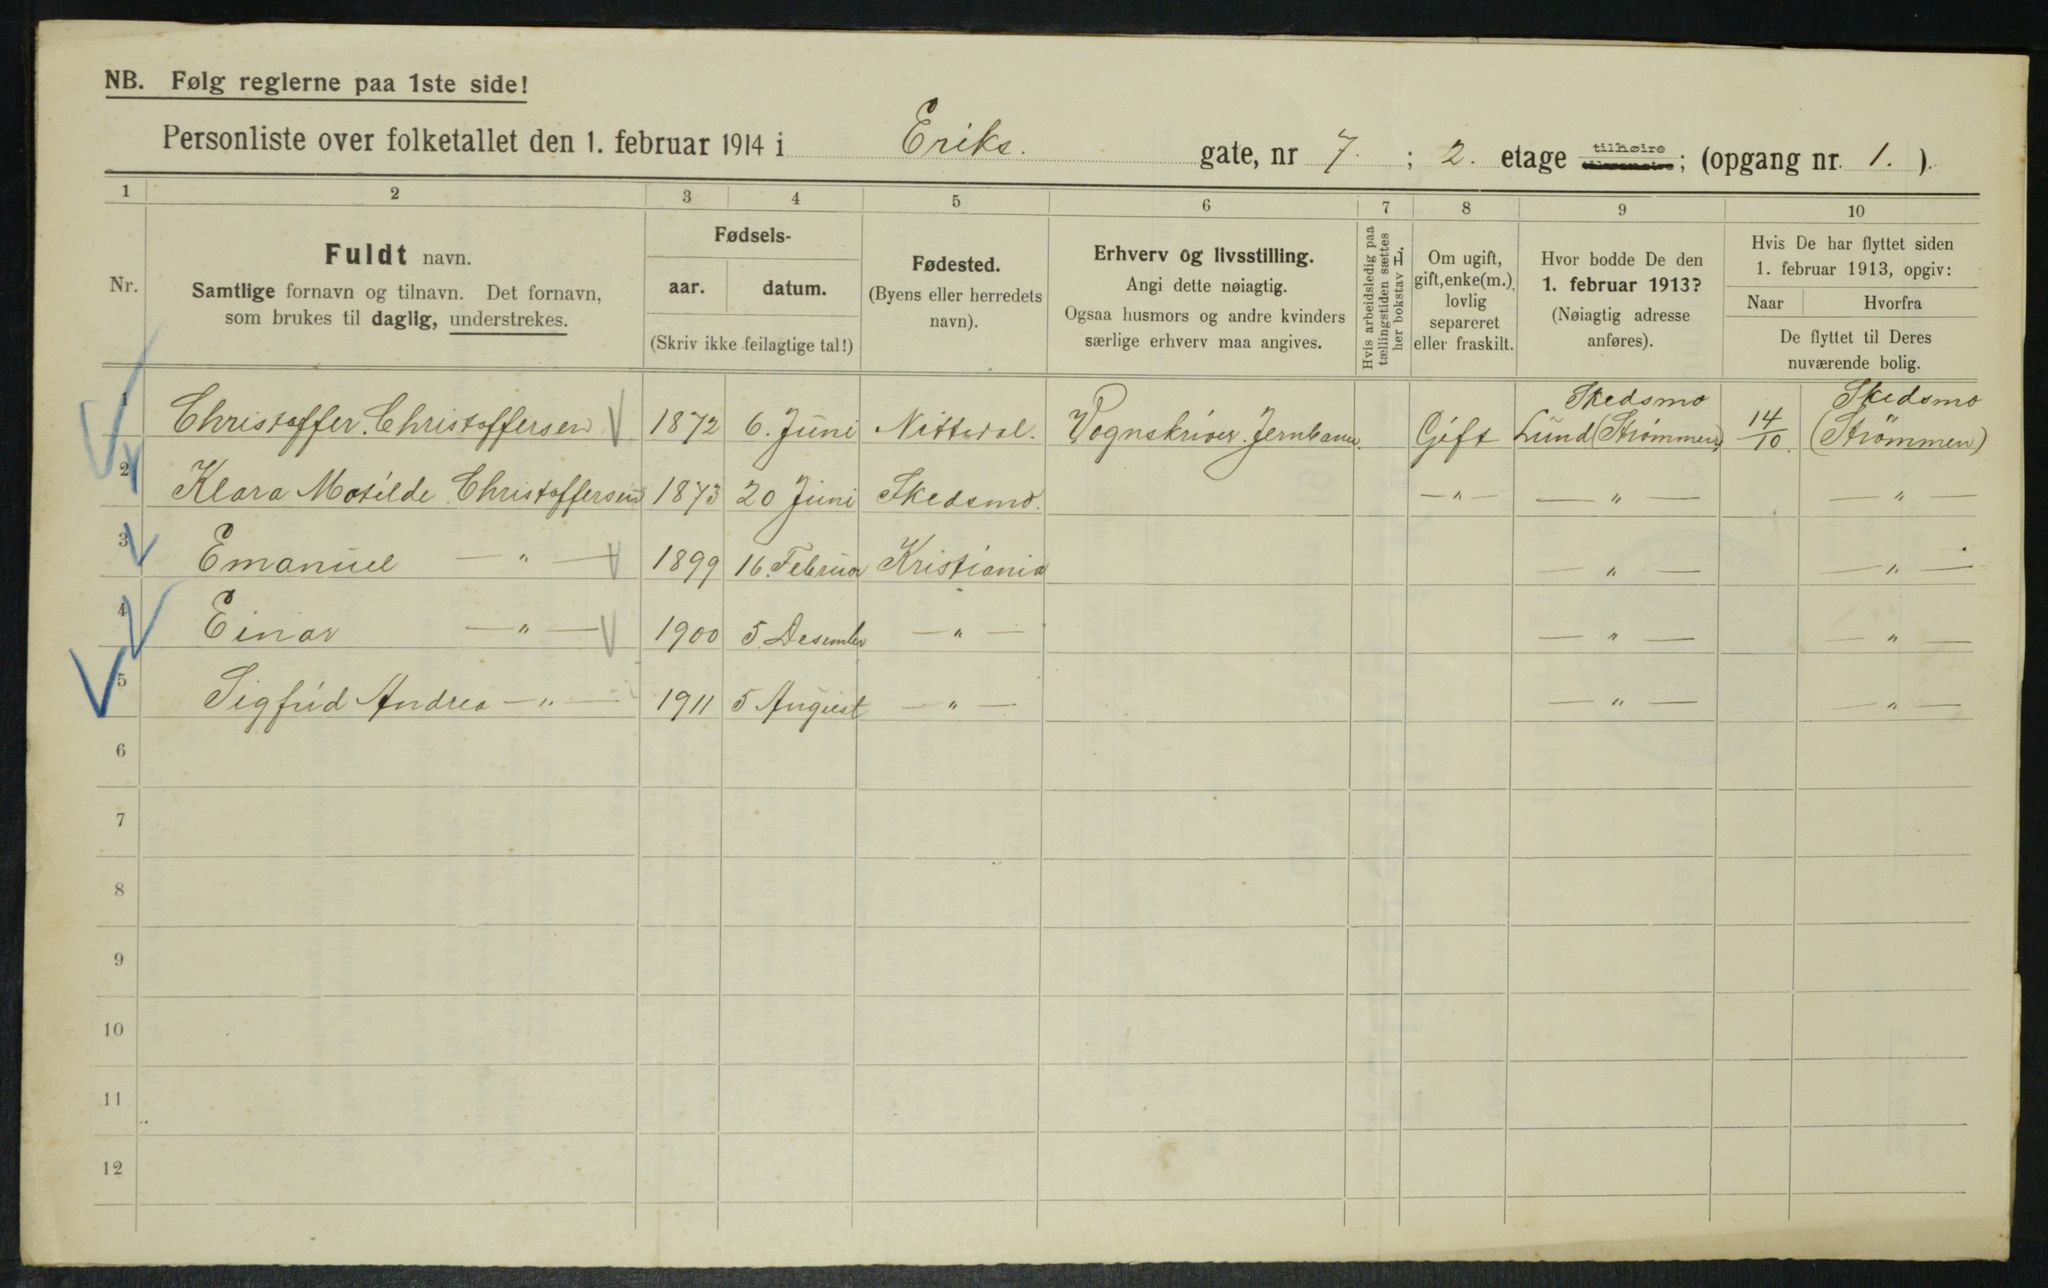 NB. Følg reglerne paa 1ste side!
Personliste over folketallet den 1. februar 1914 i Eriks. gate, nr 7. ; 2. etage tilhøire tilvenstre; (opgang nr. 1. ).
1 2 3 4 5 6 7 8 9 10
Nr.
Fuldt navn.
Samtlige fornavn og tilnavn. Det fornavn,
som brukes til daglig, understrekes.
Fødsels-
aar. datum.
(Skriv ikke feilagtige tal!)
Fødested.
(Byens eller herredets
navn).
Erhverv og livsstilling.
Angi dette nøiagtig.
Ogsaa husmors og andre kvinders
særlige erhverv maa angives.
Hvis arbeidsledig paa
tællingstiden sættes
her bokstav L.
Om ugift,
gift, enke(m.),
lovlig
separeret
eller fraskilt.
Hvor bodde De den
1. februar 1913?
(Nøiagtig adresse
anføres).
Hvis De har flyttet siden
1. februar 1913, opgiv:
Naar Hvorfra
De flyttet til Deres
nuværende bolig.
1 Christoffer Christoffersen 1872 6. Juni Nittedal. Vognskriver. Jernbanen. Gift Skedsmo Lund (Strømmen) 14/10. Skedsmo (Strømmen)
2 Klara Matilde Christoffersen 1873 20 Juni Skedsmo. —"— —"— —"—
3 Emanuel —"— 1899 16. Februar Kristiania —"— —"—
4 Einar —"— 1900 5 Desember —"— —"— —"—
5 Sigfrid Andrea —"— 1911 5 August —"— —"— —"—
6
7
8
9
10
11
12